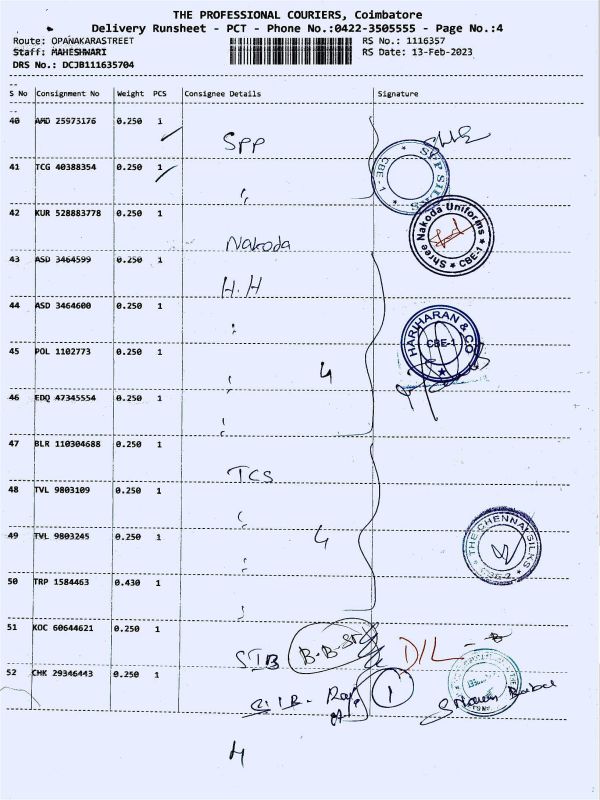 THE PROFESSIONAL COURIERS, Coimbatore
Delivery Runsheet - PCT - Phone No.:0422-3505555 - Page No.:4
Route: OPANAKARASTREET
RS No.: 1116357
Staff: MAHESHWARI
RS Date: 13-Feb-2023
DRS No.: DCJB111635704
S No Consignment No Weight PCS Consignee Details Signature
40 AMD 25973176 0.250 1
SPP
SPP SILKS CBE-1
41 TCG 40388354 0.250 1
42 KUR 528883778 0.250 1
Nakoda
Shree Nakoda Uniforms CBE-1
43 ASD 3464599 0.250 1
H.H
44 ASD 3464600 0.250 1
HARIHARAN & CO CBE-1
45 POL 1102773 0.250 1
4
46 EDQ 47345554 0.250 1
47 BLR 110304688 0.250 1
TCS
48 TVL 9803109 0.250 1
49 TVL 9803245 0.250 1
4
THE CHENNAI SILKS
50 TRP 1584463 0.430 1
51 KOC 60644621 0.250 1
D/L
52 CHK 29346443 0.250 1
1
4